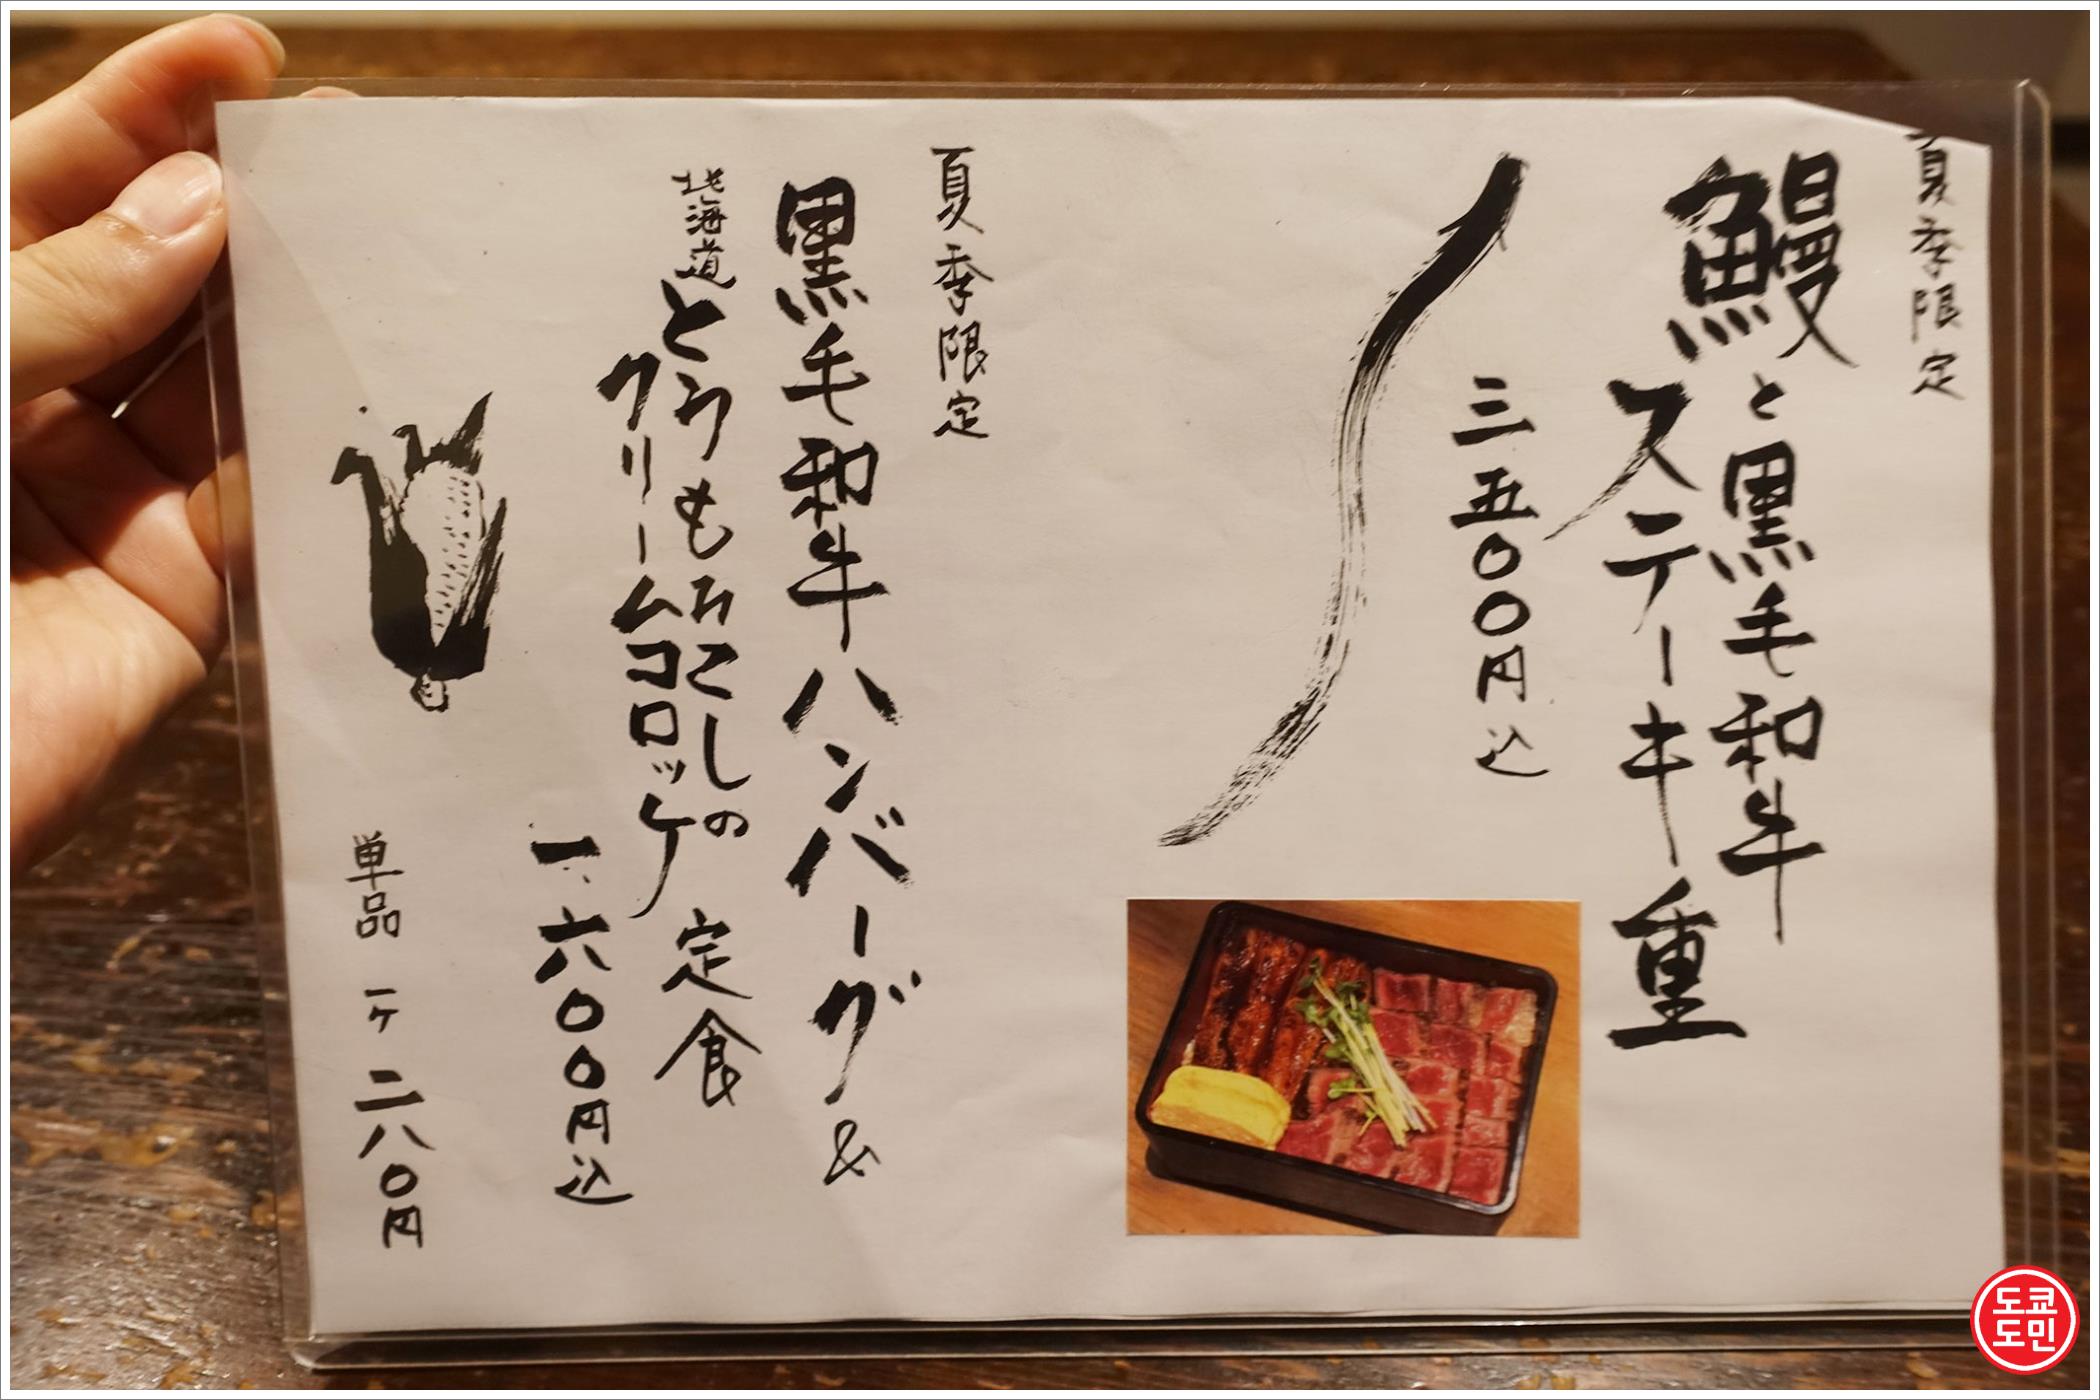 夏季限定
鰻と黒毛和牛
ステーキ重
三五〇〇円込
夏季限定
黒毛和牛ハンバーグ&
北海道とうもろこしの
クリームコロッケ定食
一、六〇〇円込
単品 一ケ 二八〇円
도쿄
도민